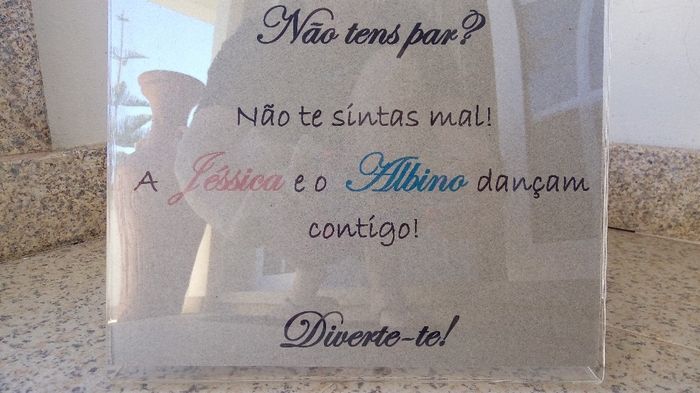 Não tens par?
Não te sintas mal!
A Jéssica e o Albino dançam
contigo!
Diverte-te!